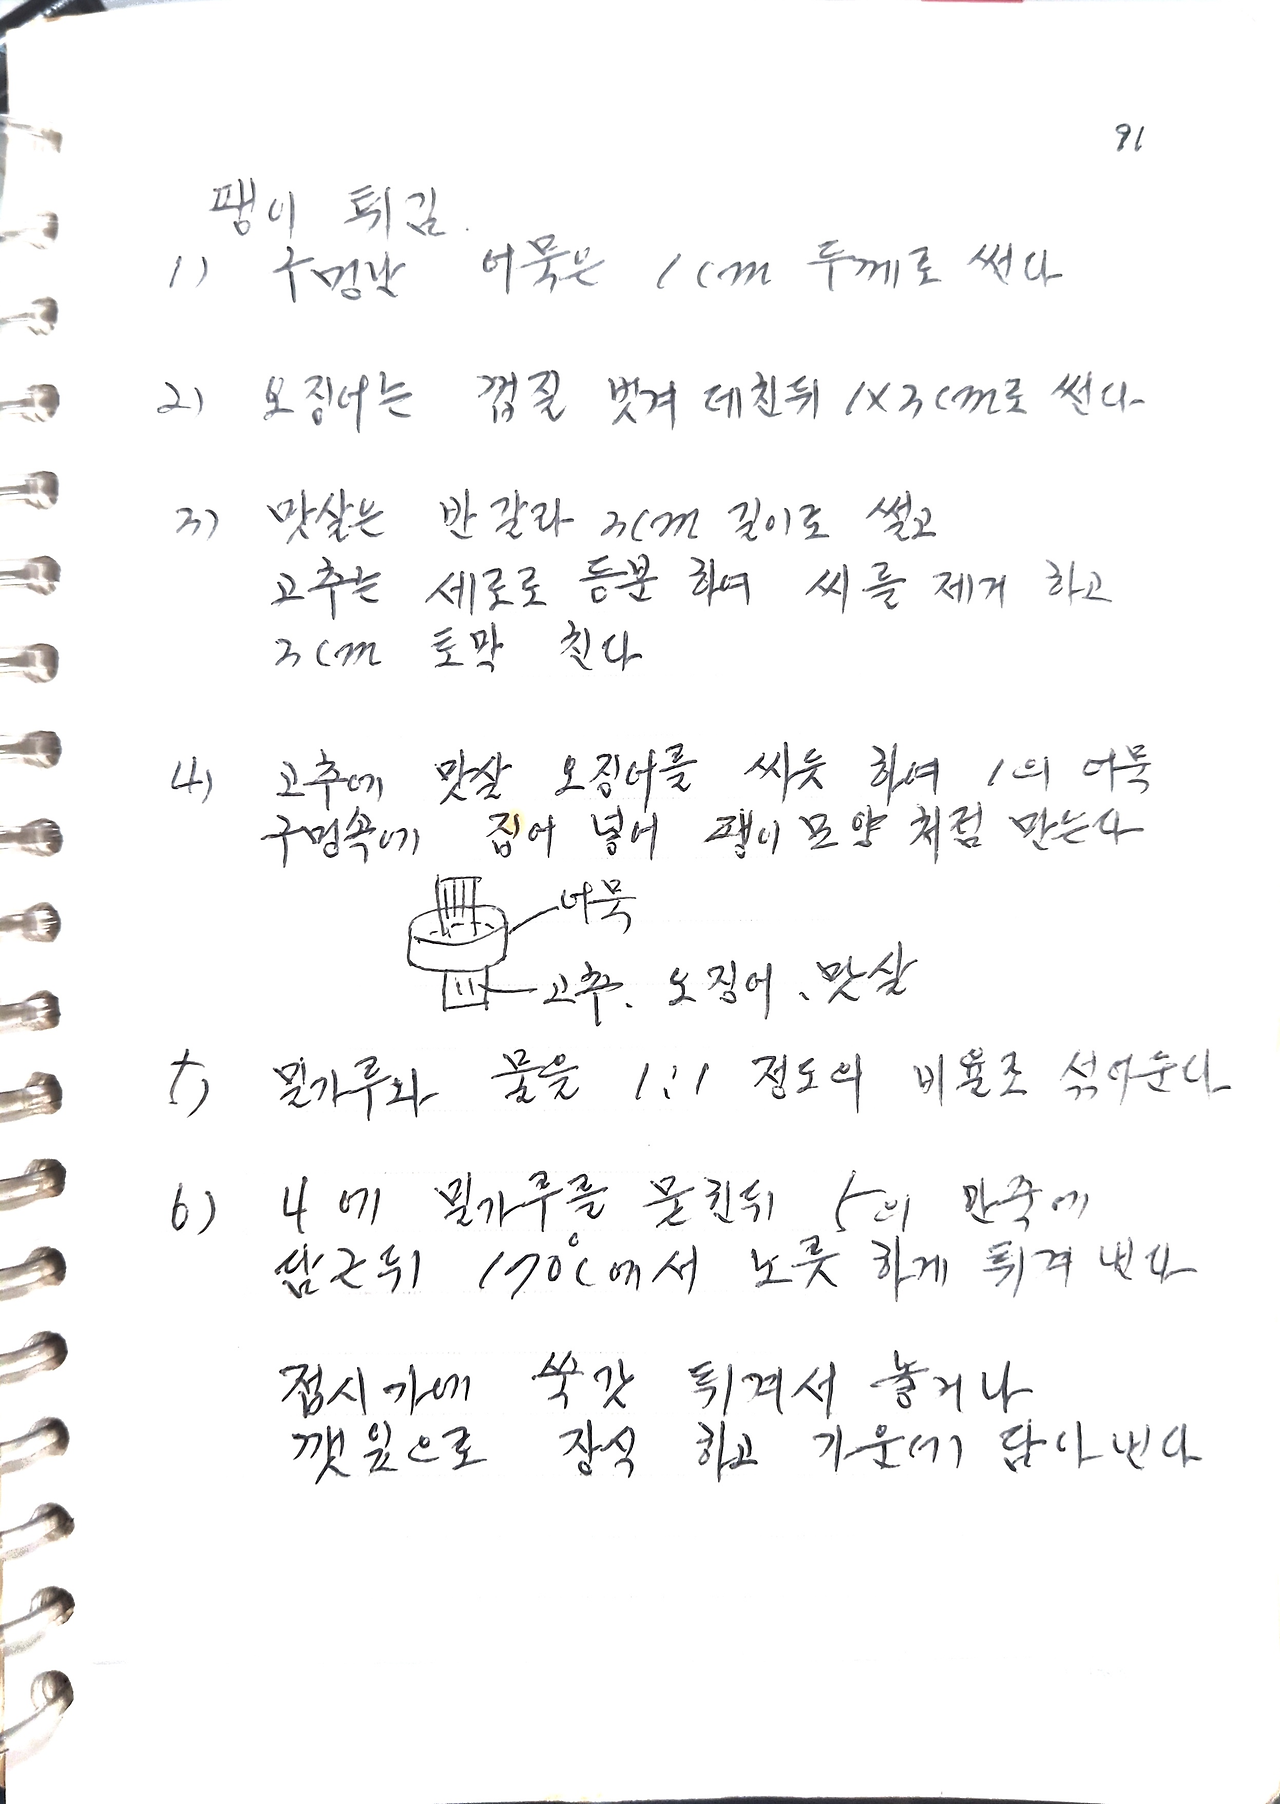 91
팽이 튀김.
1) 구멍난 어묵은 1cm 두께로 썬다
2) 오징어는 껍질 벗겨 데친뒤 1×3cm로 썬다.
3) 맛살은 반 갈라 3cm 길이로 썰고
고추는 세로로 등분 하여 씨를 제거 하고
3cm 토막 친다
4) 고추에 맛살 오징어를 싸듯 하여 1의 어묵
구멍속에 집어 넣어 팽이 모양 처럼 만든다
어묵
고추. 오징어. 맛살
5) 밀가루와 물을 1:1 정도의 비율로 섞어둔다
6) 4에 밀가루를 뭍친뒤 5의 반죽에
담근뒤 170℃에서 노릇 하게 튀겨 낸다
접시가에 쑥갓 튀겨서 놓거나
깻잎으로 장식 하고 가운데 담아 낸다